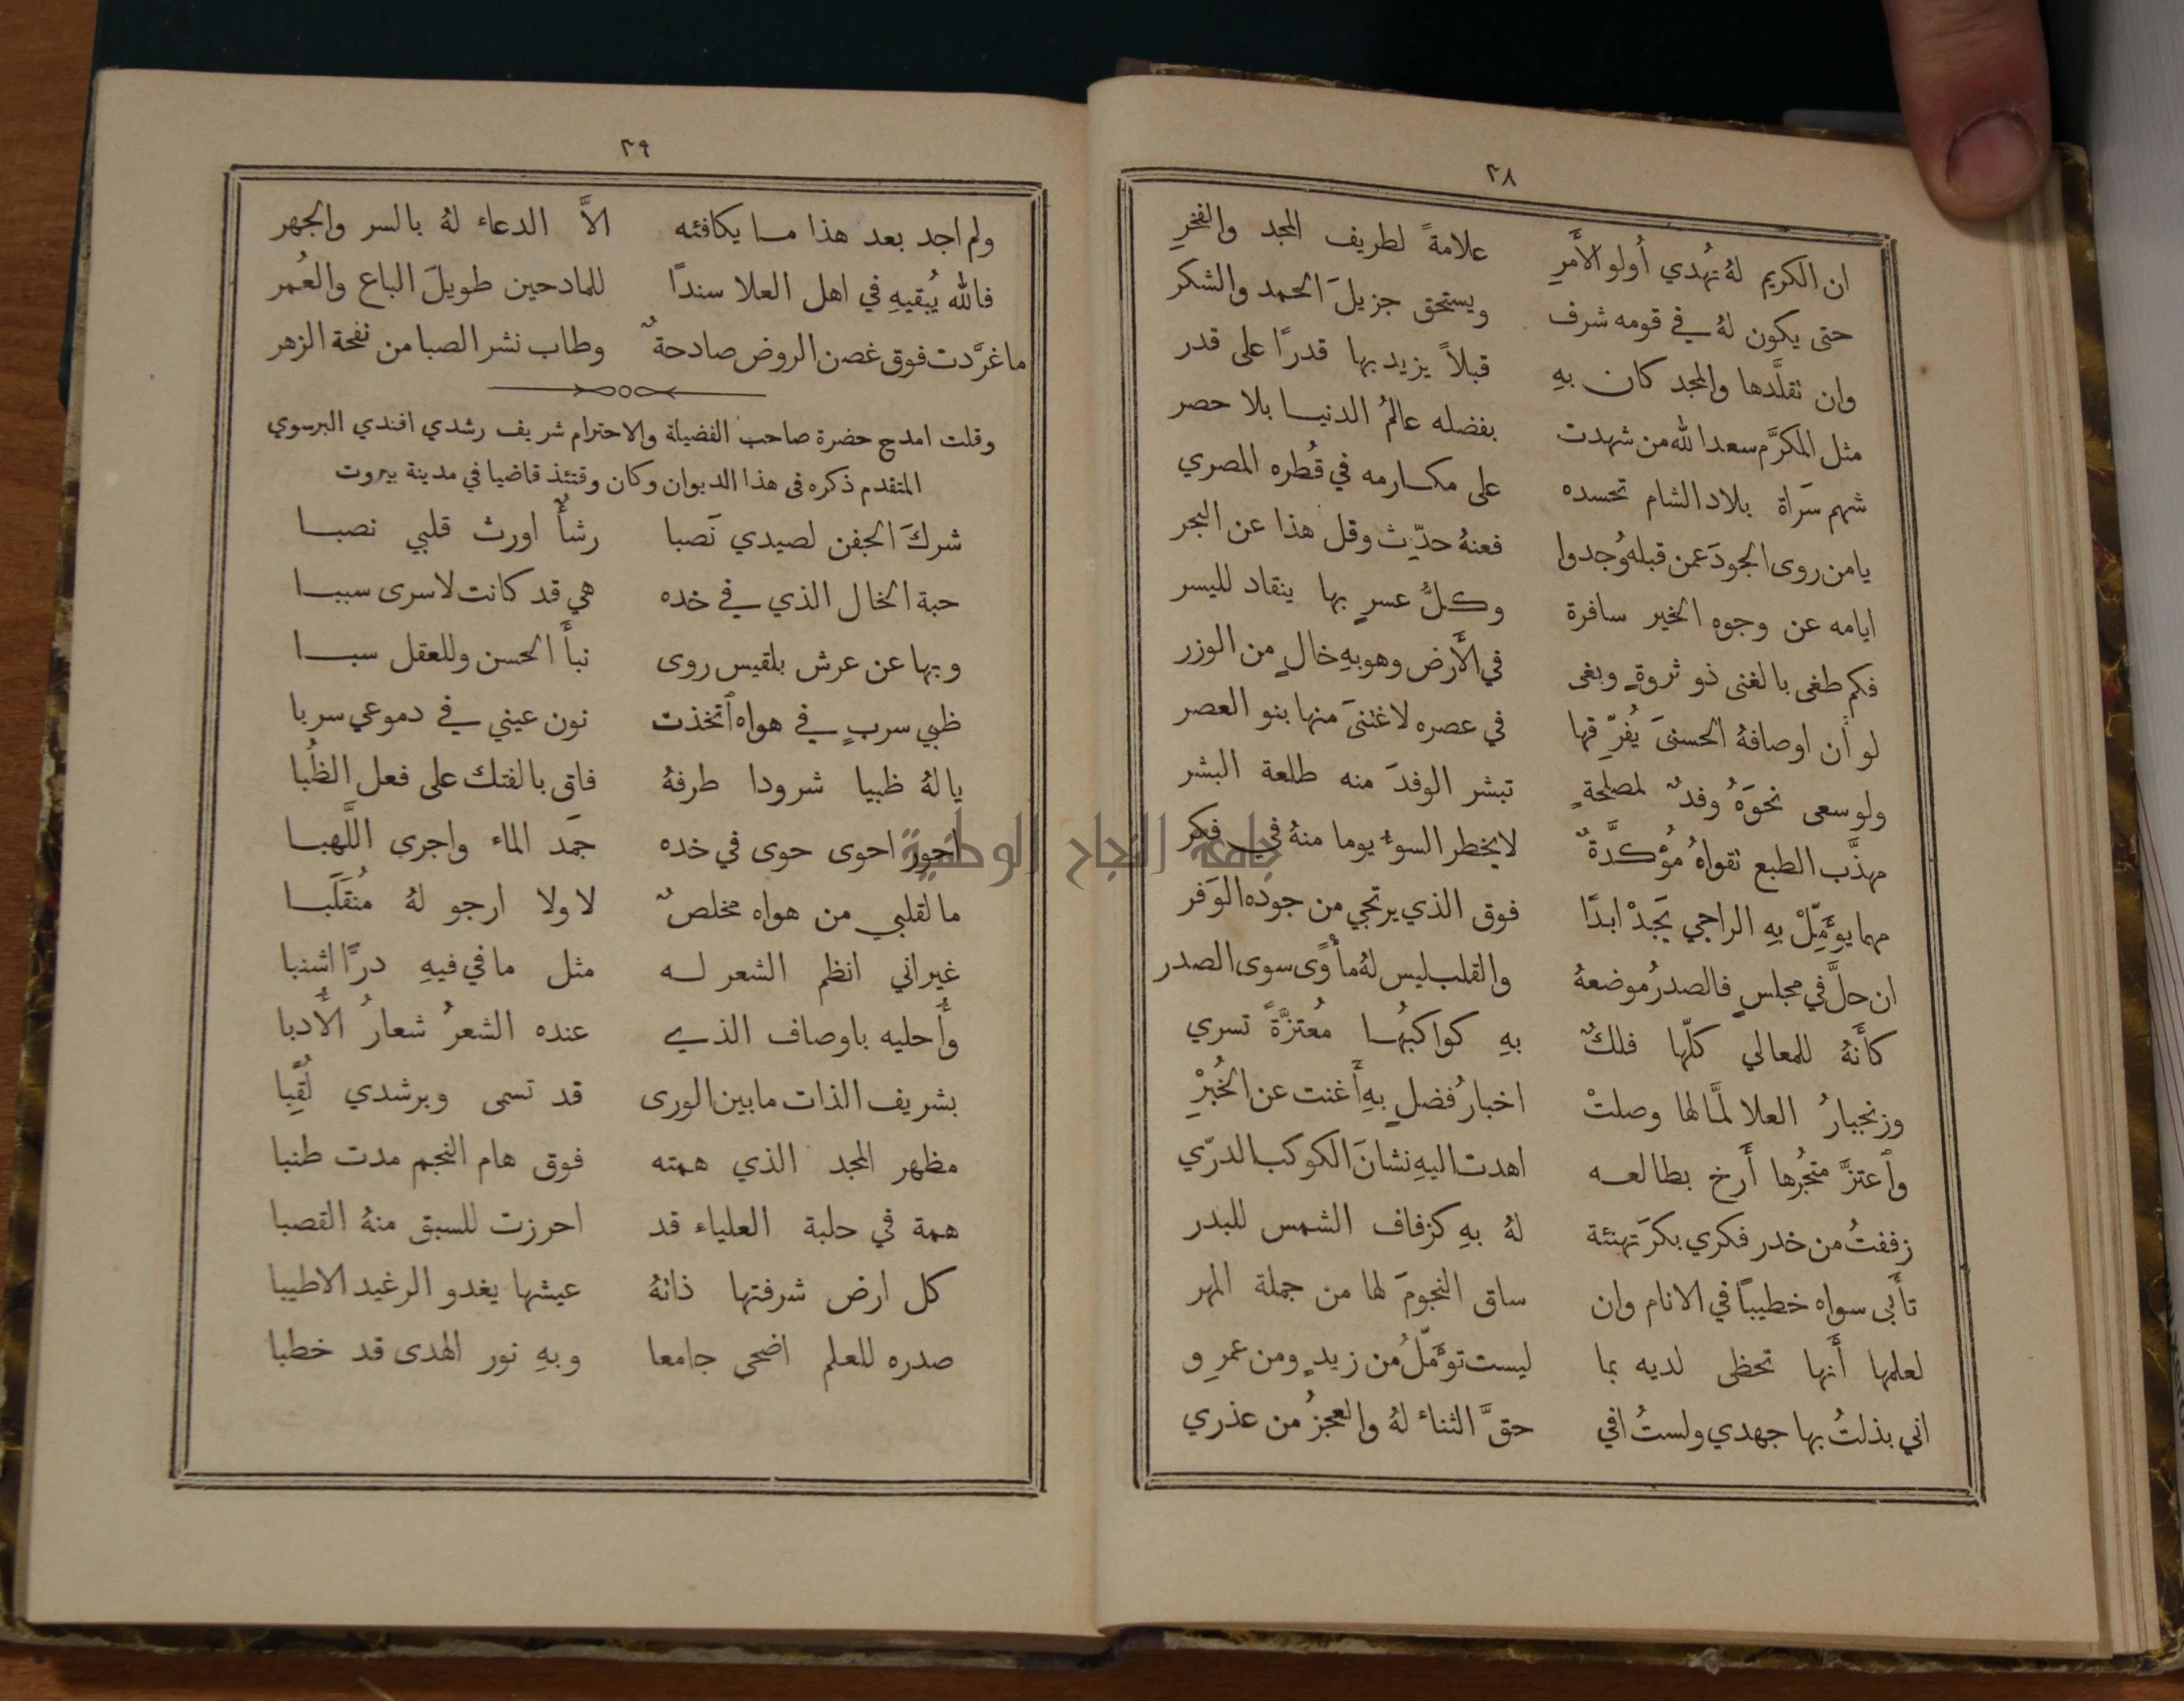 ٣٨
ان الكريم لهُ تُهدي أُولو الأَمرِ علامةً لطريف المجد والفخرِ
حتى يكون لهُ في قومه شرف ويستحق جزيلَ الحمد والشكر
وان نقلَّدها والمجد كان بهِ قبلاً يزيد بها قدرًا على قدر
مثل المكرَّم سعد الله من شهدت بفضله عالمُ الدنيا بلا حصر
شهم سَراة بلاد الشام تحسده على مكارمه في قُطره المصري
يامن روى الجودَ عمن قبله وُجدوا فعنهُ حدّث وقل هذا عن البحر
ايامه عن وجوه الخير سافرة وكلُّ عسرٍ بها ينقاد لليسر
فكم طغى بالغنى ذو ثروةٍ وبغى في الأَرض وهو بهِ خالٍ من الوزر
لو أن اوصافهُ الحسنىَ يُفرّقها في عصره لاغتنىَ منها بنو العصر
ولو سعى نحوَهُ وفدٌ لمصلحةٍ تبشر الوفدَ منه طلعة البشر
مهذَّب الطبع نقواهُ مؤُكدَّةٌ لا يخطر السوءُ يوما منهُ في فكر
مهما يؤَمّلْ بهِ الراجي يَجدْ ابدًا فوق الذي يرتجي من جوده الوَفر
ان حلَّ في مجلسٍ فالصدرُ موضعهُ والقلب ليس لهُ مأْوًى سوى الصدر
كأَنهُ للمعالي كلّها فلكٌ بهِ كواكبهُا مُعتزَّةً تسري
وزنجبارُ العلا لمَّا لها وصلتْ اخبارُ فضلٍ بهِ أَغنت عن الخُبْرِ
وٱعتزَّ متجُرها أَرخ بطالعه اهدت اليهِ نشانَ الكوكب الدرّي
زففتُ من خدر فكري بكرَ تهنئة لهُ بهِ كزفاف الشمس للبدر
تأَبى سواه خطيباً في الانام وان ساق النجومَ لها من جملة المهر
لعلمها أَنها تحظى لديه بما ليست تؤَمّلُ من زيدٍ ومن عمرِو
اني بذلتُ بها جهدي ولستُ افي حقَّ الثناء لهُ والعجزُ من عذري
٣٩
ولم اجد بعد هذا ما يكافئه الاَّ الدعاء لهُ بالسر والجهر
فالله يُبقيهِ في اهل العلا سندًا للمادحين طويلَ الباع والعُمر
ما غرَّدت فوق غصن الروض صادحةٌ وطاب نشر الصبا من نفحة الزهر
وقلت امدح حضرة صاحب الفضيلة والاحترام شريف رشدي افندي البرسوي
المتقدم ذكره في هذا الديوان وكان وقتئذ قاضيا في مدينة بيروت
شركَ الجفن لصيدي نَصبا رشأٌ اورث قلبي نصبا
حبة الخال الذي في خده هي قد كانت لاسرى سببا
وبها عن عرش بلقيس روى نبأَ الحسن وللعقل سبا
ظبي سربٍ في هواه ٱتخذت نون عيني في دموعي سربا
يا لهُ ظبيا شرودا طرفهُ فاق بالفتك على فعل الظُبا
احور احوى حوى في خده جمَد الماء واجرى اللَّهبا
ما لقلبي من هواه مخلصٌ لا ولا ارجو لهُ مُنقَلَبا
غير اني انظم الشعر له مثل ما في فيهِ درًّا اشنبا
وأُحليه باوصاف الذي عنده الشعرُ شعارُ الأُدبا
بشريف الذات ما بين الورى قد تسمى وبرشدي لُقِّبا
مظهر المجد الذي همته فوق هام النجم مدت طنبا
همة في حلبة العلياء قد احرزت للسبق منهُ القصبا
كل ارض شرفتها ذاتهُ عيشها يغدو الرغيد الاطيبا
صدره للعلم اضحى جامعا وبهِ نور الهدى قد خطبا
جامعة النجاح الوطنية